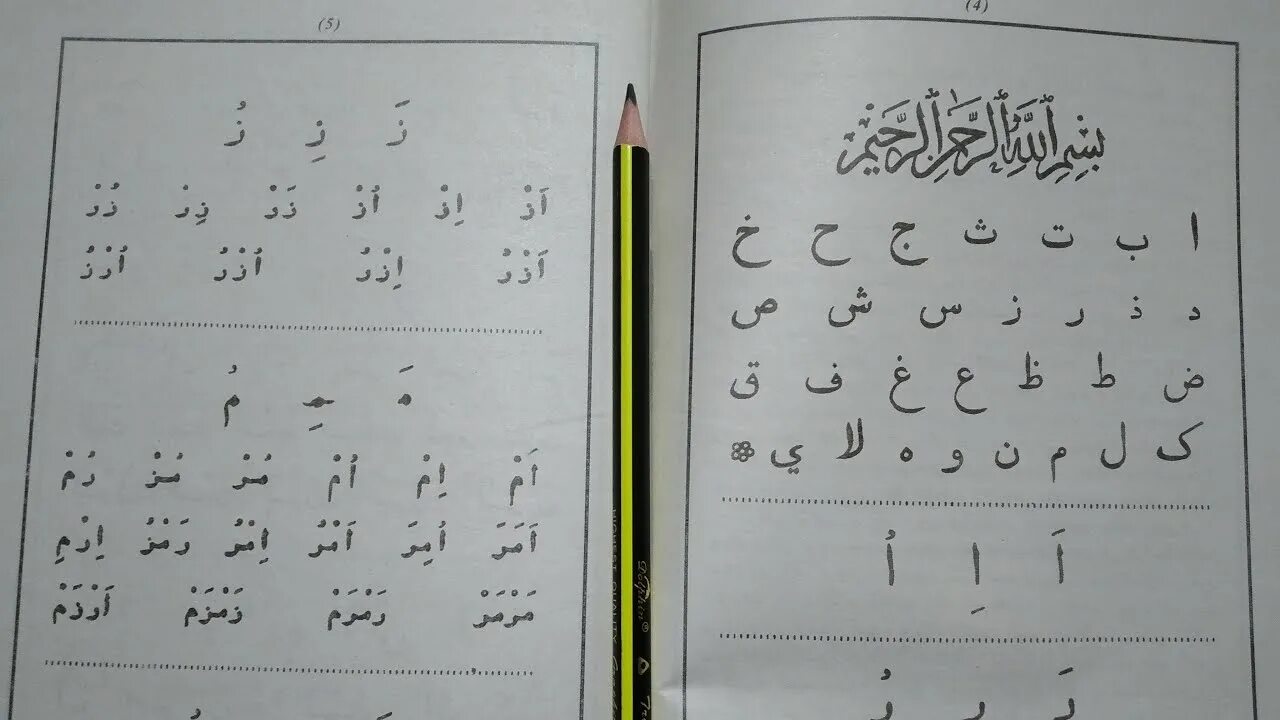 (4)
بِسْمِ اللَّهِ الرَّحْمَٰنِ الرَّحِيمِ
ا ب ت ث ج ح خ
د ذ ر ز س ش ص
ض ط ظ ع غ ف ق
ک ل م ن و ه لا ي
اَ اِ اُ
(5)
زَ زِ زُ
اَزْ اِزْ اُزْ زَرْ زِرْ زُرْ
اَزْرُ اِزْرُ اُزْرُ اُرْزُ
مَ مِ مُ
اَمْ اِمْ اُمْ مُرْ مُزْ رُمْ
اَمَرَ اُمِرَ اَمْرُ اِمْرُ رَمْزُ اِرْمِ
مَرْمَرْ رَمْرَمْ زَمْزَمْ اَرْزَمْ
Dolphin®